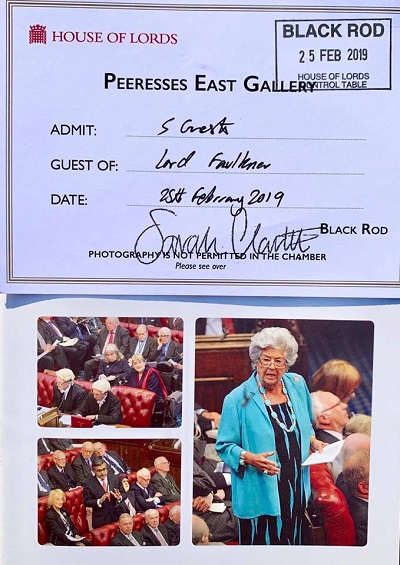 HOUSE OF LORDS
BLACK ROD
25 FEB 2019
HOUSE OF LORDS
CONTROL TABLE
PEERESSES EAST GALLERY
ADMIT: S
GUEST OF: Lord Faulkner
DATE: 25th February 2019
Sarah Clarke
BLACK ROD
PHOTOGRAPHY IS NOT PERMITTED IN THE CHAMBER
Please see over